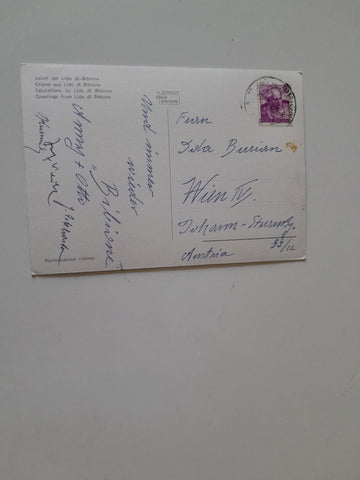 Saluti dal Lido di Bibione
Grüsse aus Lido di Bibione
Salutations du Lido di Bibione
Greetings from Lido di Bibione
Und immer
wieder
„Bibione"
Anny + Otto
Riproduzione vietata
Ida Burian
Wien IV.
Johann-
33/12
Austria